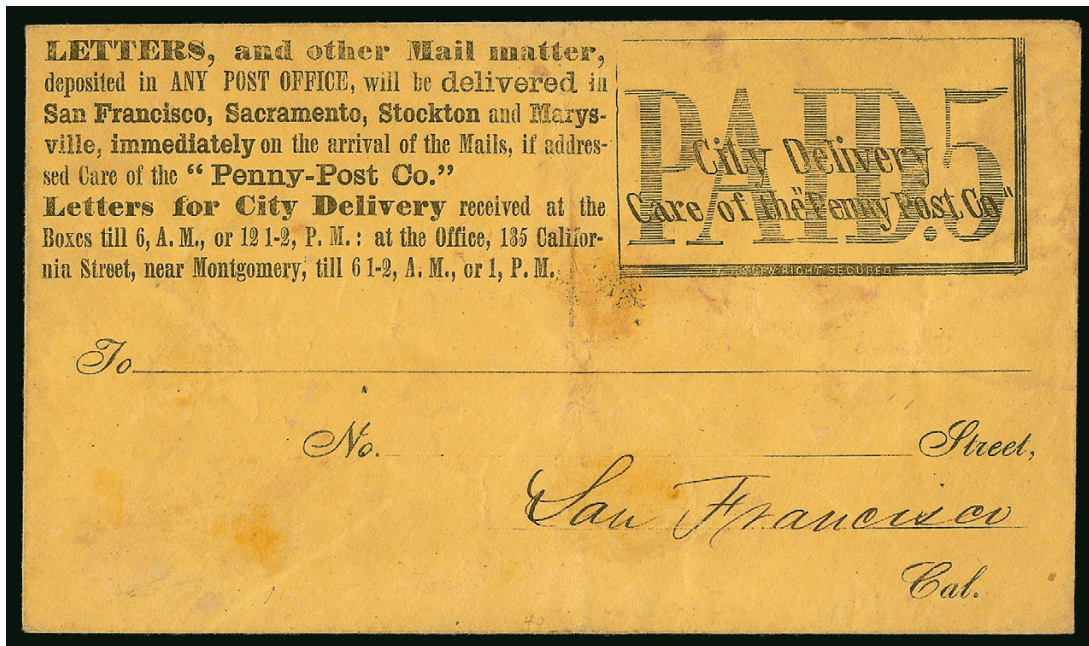 LETTERS, and other Mail matter,
deposited in ANY POST OFFICE, will be delivered in
San Francisco, Sacramento, Stockton and Marys-
ville, immediately on the arrival of the Mails, if addres-
sed Care of the “ Penny-Post Co.”
Letters for City Delivery received at the
Boxes till 6, A. M., or 12 1-2, P. M. : at the Office, 135 Califor-
nia Street, near Montgomery, till 6 1-2, A. M., or 1, P. M.
PAID.5
City Delivery
Care of the "Penny Post Co"
COPY RIGHT SECURED
To
No. Street,
San Francisco
Cal.